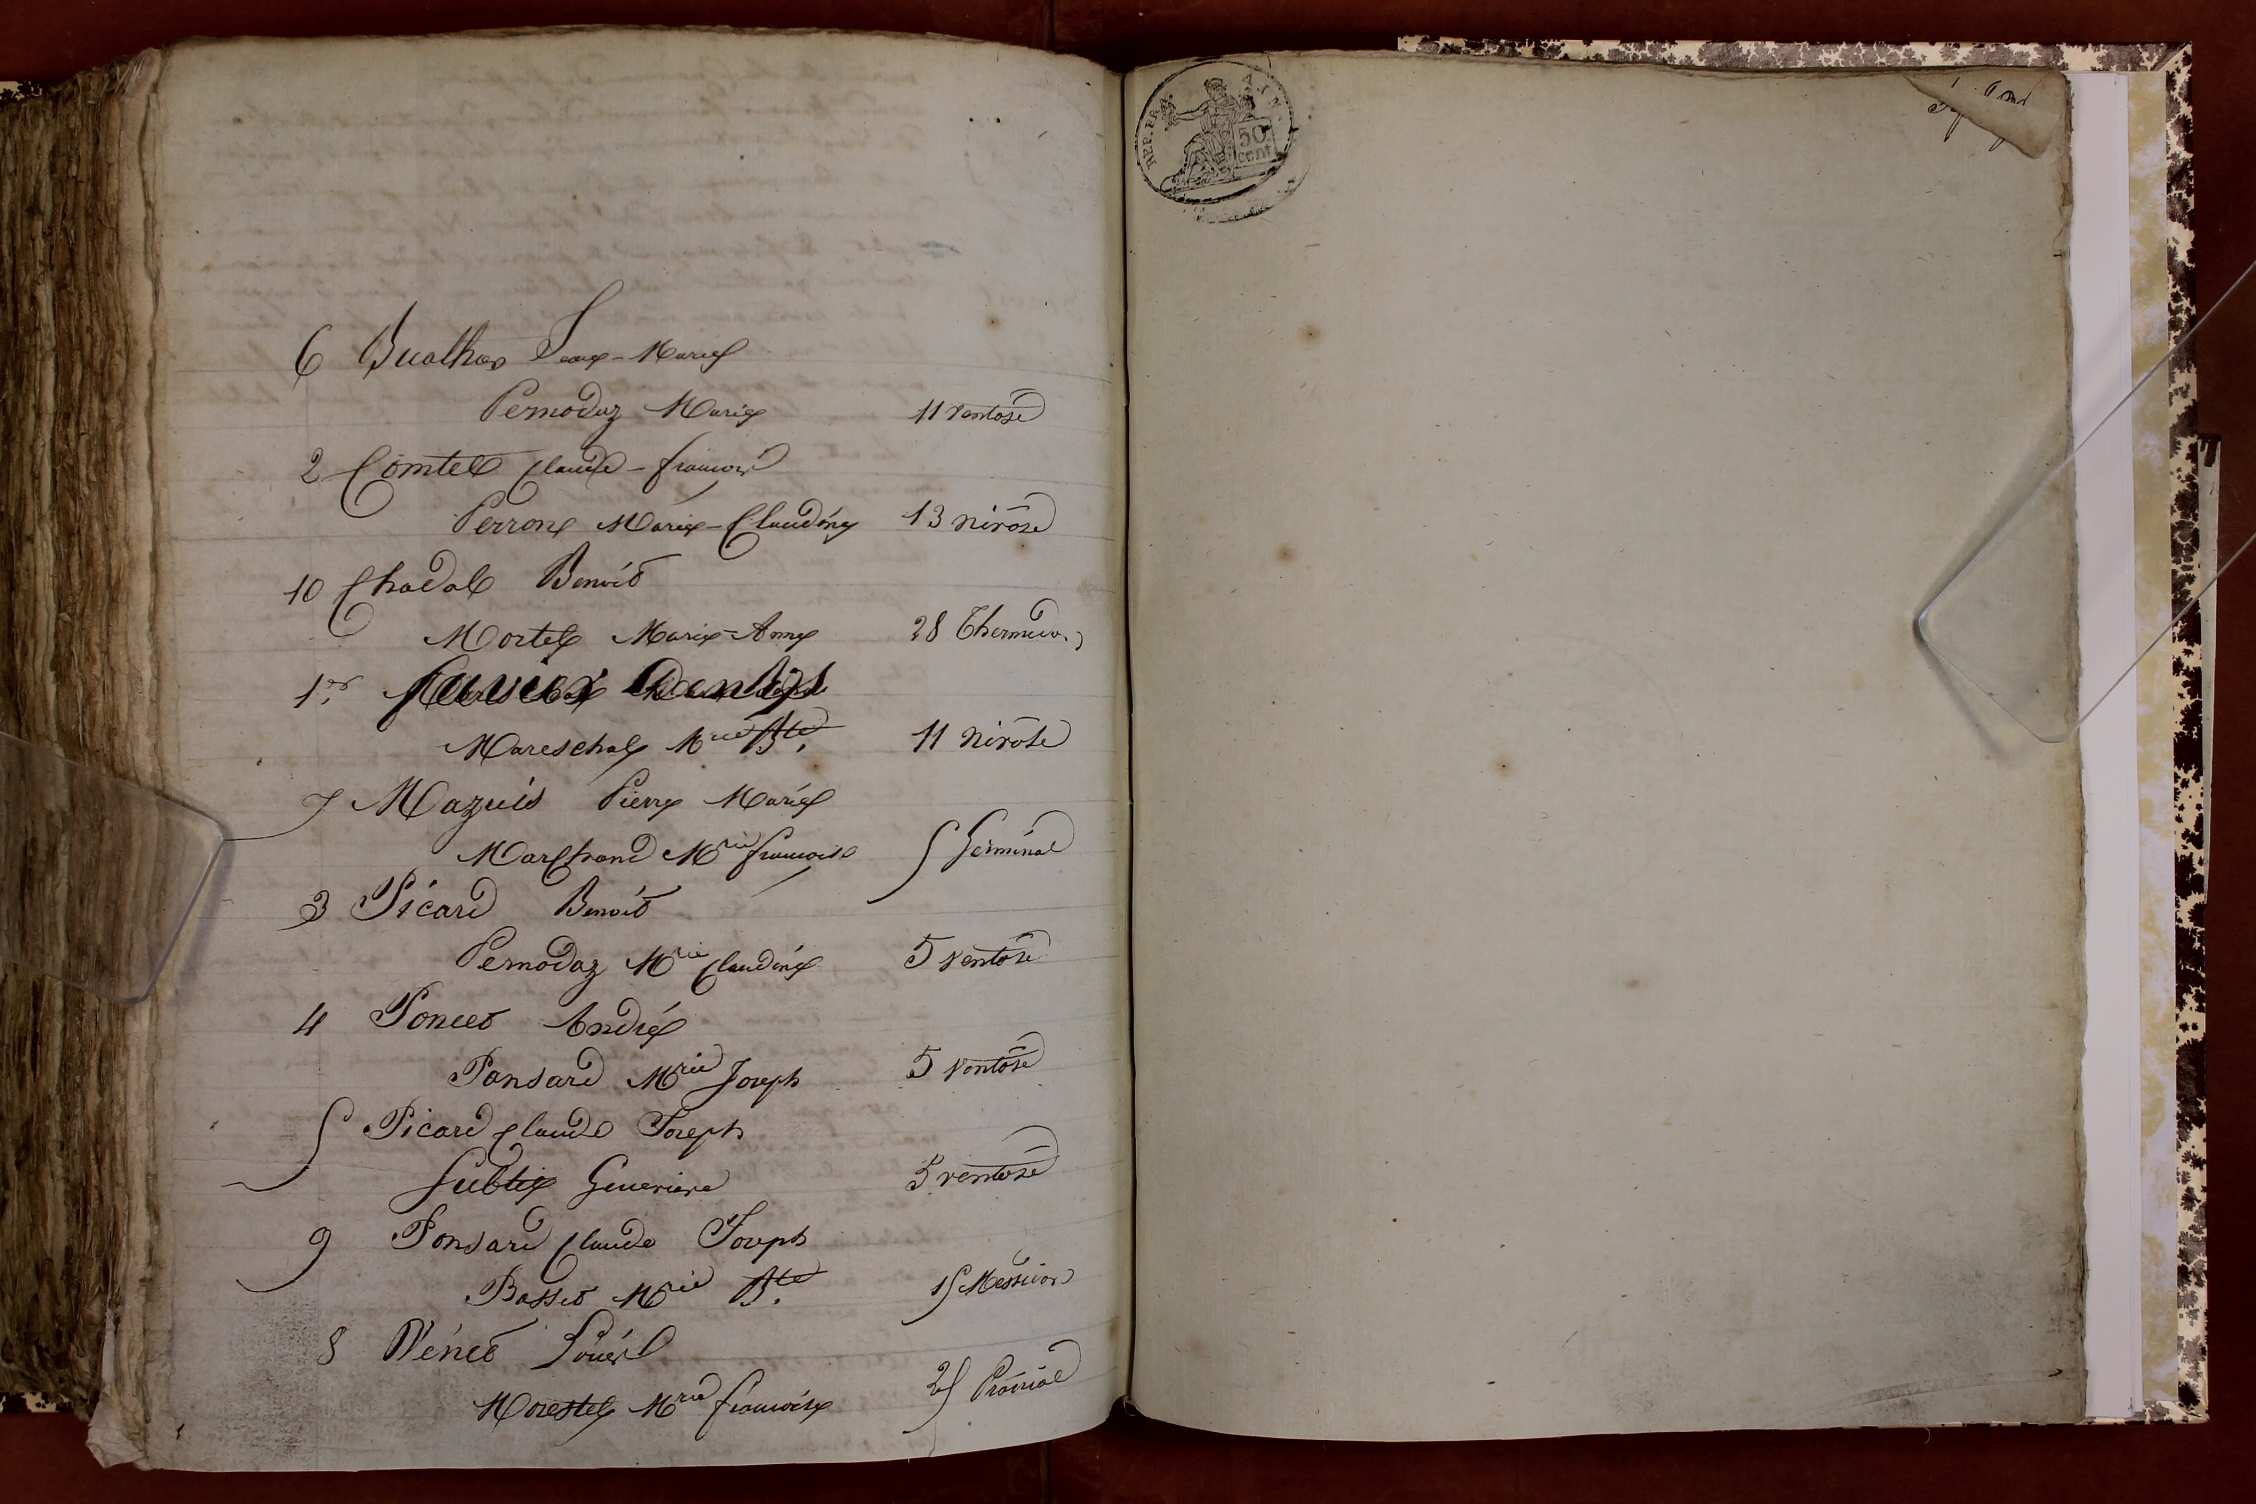 6 Buathier Jean-Marie
Pernodaz Marie 11 ventose
2 Comte Claude-françois
Perrone Marie-Claudine 13 nivose
10 Chadal Benoit
Mortel Marie-Anne 28 Thermidor
1er
Mareschal Mrie Bte 11 nivose
7 Mazuis Pierre Marie
Marchand Mrie françoise 5 Germinal
3 Picard Benoit
Pernodaz Mrie Claudine 5 ventose
4 Poncet André
Ponsard Mrie Joseph 5 ventose
5 Picard Claude Joseph
Subtix Genevieve 5 ventose
9 Ponsard Claude Joseph
Basset Mrie Bte 15 Messidor
8 Vénet Louis
Morestel Mrie françoise 25 Prairial
REP. FRA. AIN.
50
cent